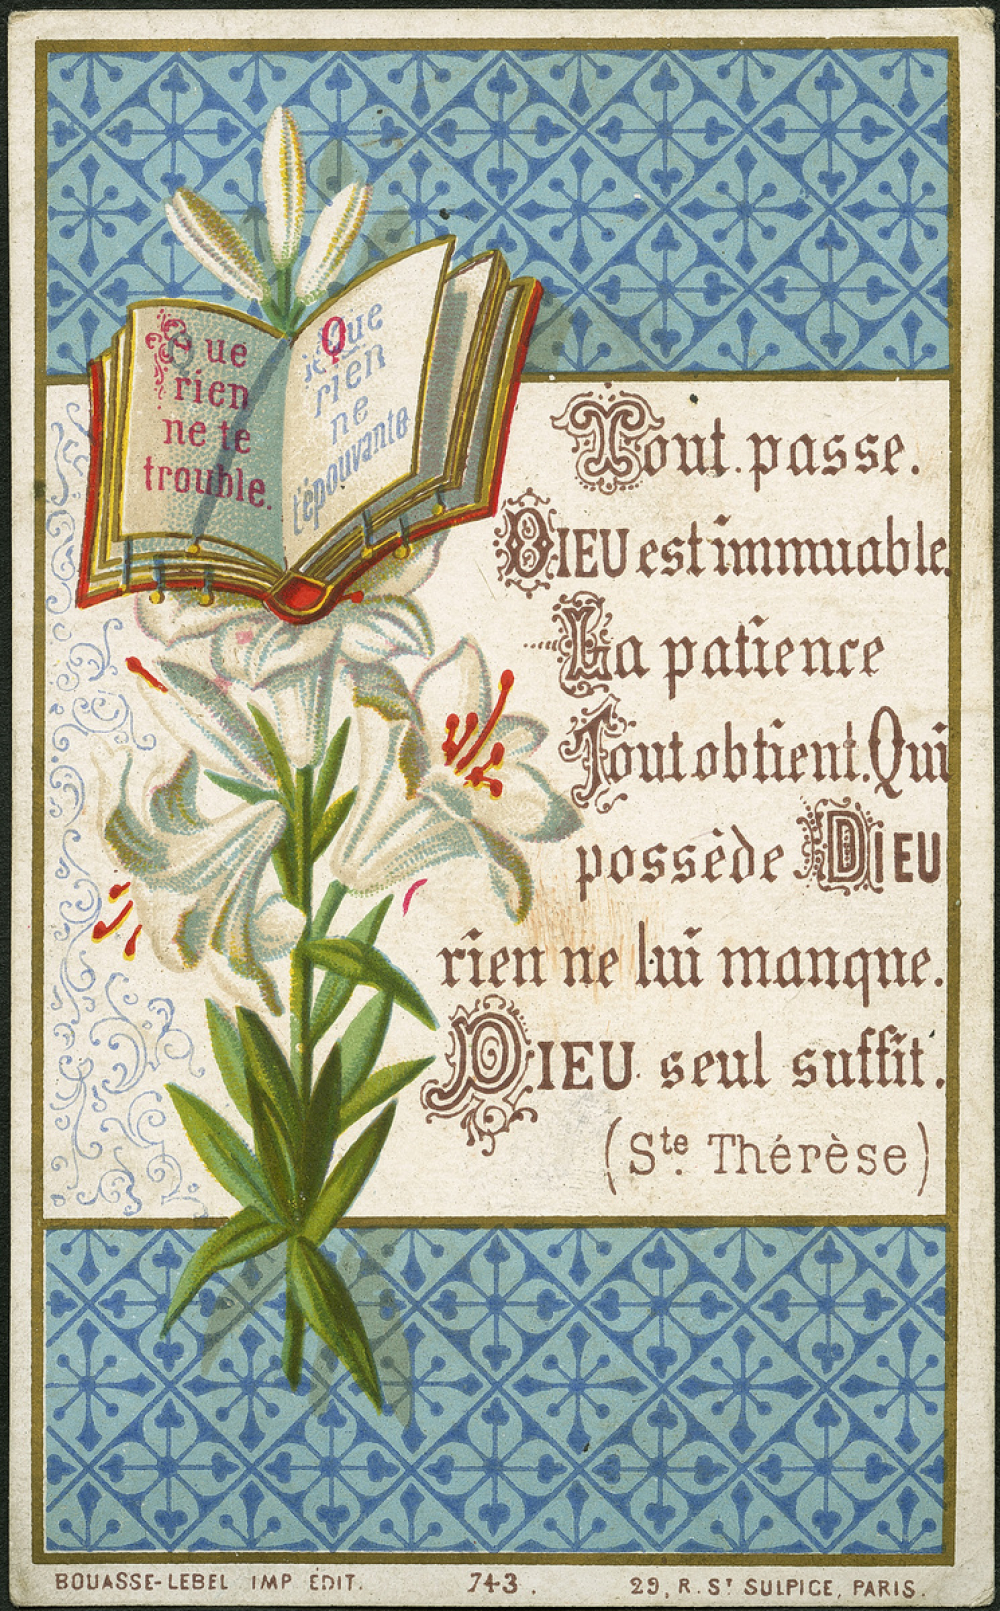 Que
rien
ne te
trouble.
Que
rien
ne
t'épouvante
Tout passe.
DIEU est immuable.
La patience
Tout obtient. Qui
possède DIEU
rien ne lui manque.
DIEU seul suffit.
(Ste. Thérèse)
BOUASSE-LEBEL IMP ÉDIT. 743. 29, R. ST SULPICE, PARIS.